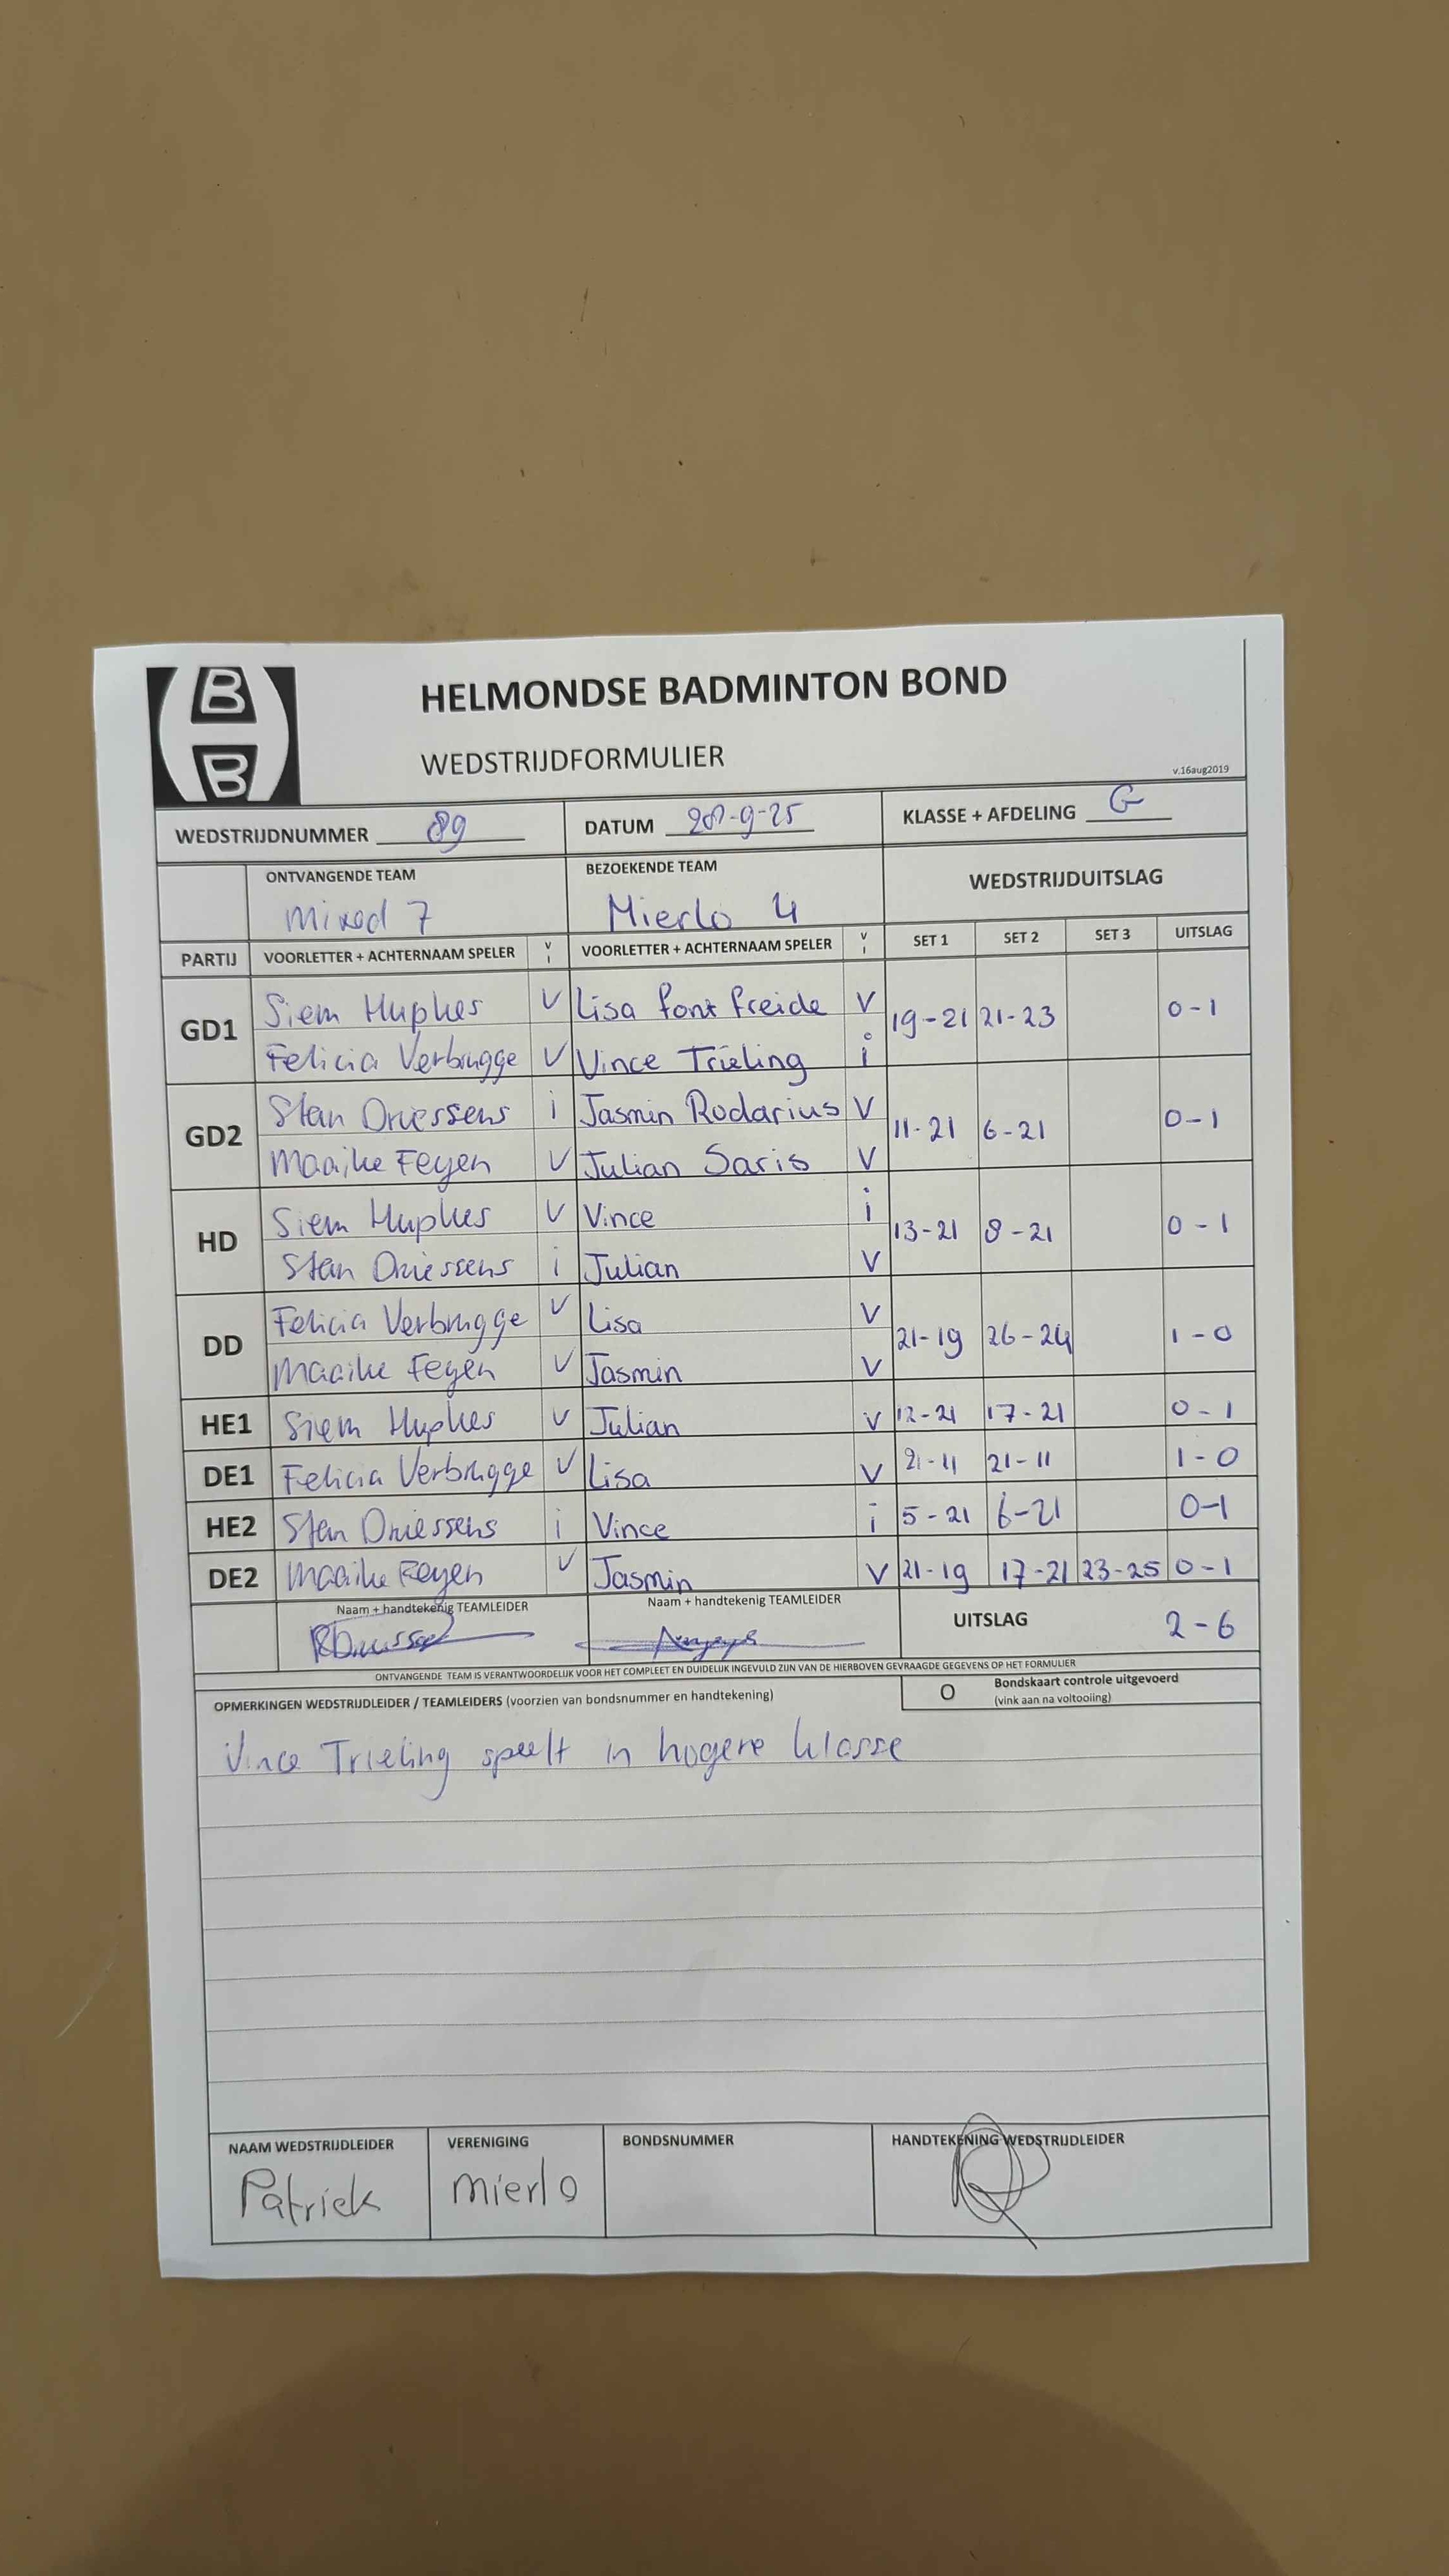 HELMONDSE BADMINTON BOND
WEDSTRIJDFORMULIER
v.16aug2019
WEDSTRIJDNUMMER 89 DATUM 28-9-25 KLASSE + AFDELING G
ONTVANGENDE TEAM BEZOEKENDE TEAM WEDSTRIJDUITSLAG
Mixed 7 Mierlo 4
PARTIJ VOORLETTER + ACHTERNAAM SPELER V I VOORLETTER + ACHTERNAAM SPELER V I SET 1 SET 2 SET 3 UITSLAG
GD1 Siem Huphes V Lisa Pont Freide V 19-21 21-23 0-1
Felicia Verbrugge V Vince Trieling i
GD2 Stan Driessens i Jasmin Rodarius V 11-21 6-21 0-1
Maaike Feyen V Julian Saris V
HD Siem Huphes V Vince i 13-21 8-21 0-1
Stan Driessens i Julian V
DD Felicia Verbrugge V Lisa V 21-19 26-24 1-0
Maaike Feyen V Jasmin V
HE1 Siem Huphes V Julian V 12-21 17-21 0-1
DE1 Felicia Verbrugge V Lisa V 21-11 21-11 1-0
HE2 Stan Driessens i Vince i 5-21 6-21 0-1
DE2 Maaike Feyen V Jasmin V 21-19 17-21 23-25 0-1
Naam + handtekenig TEAMLEIDER Naam + handtekenig TEAMLEIDER UITSLAG 2-6
ONTVANGENDE TEAM IS VERANTWOORDELIJK VOOR HET COMPLEET EN DUIDELIJK INGEVULD ZIJN VAN DE HIERBOVEN GEVRAAGDE GEGEVENS OP HET FORMULIER
OPMERKINGEN WEDSTRIJDLEIDER / TEAMLEIDERS (voorzien van bondsnummer en handtekening) O Bondskaart controle uitgevoerd
(vink aan na voltooiing)
Vince Trieling speelt in hogere klasse
NAAM WEDSTRIJDLEIDER VERENIGING BONDSNUMMER HANDTEKENING WEDSTRIJDLEIDER
Patrick Mierlo